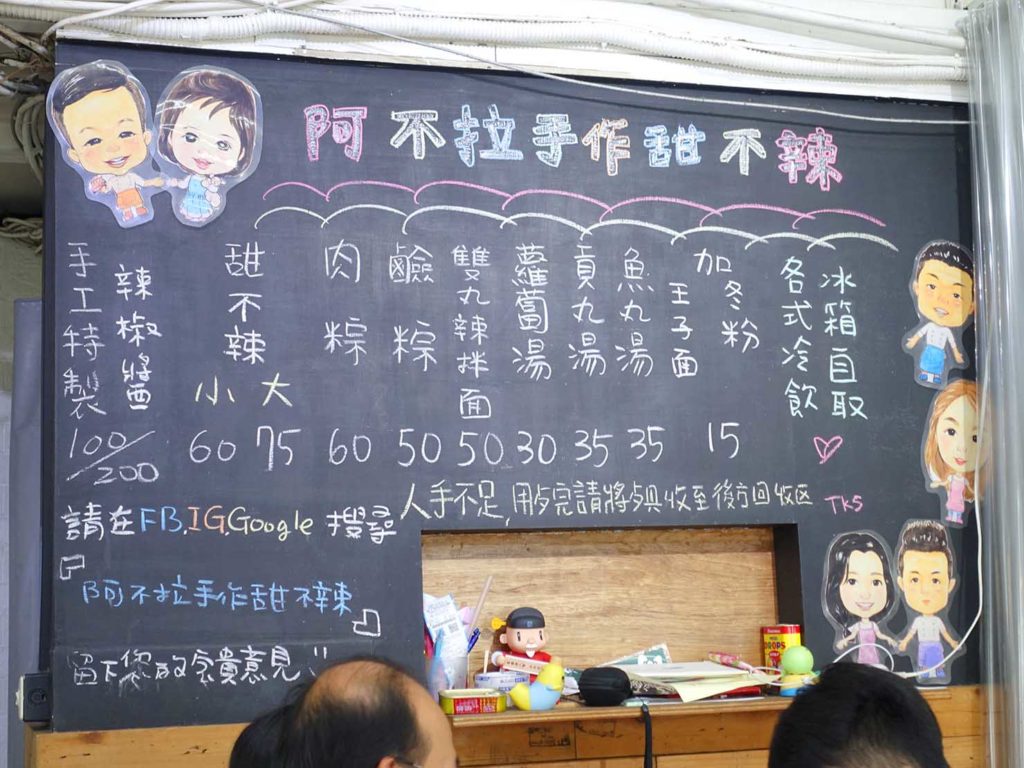 阿不拉手作甜不辣
手工特製
辣椒醬
100/200
甜不辣
小 大
60 75
肉粽
60
鹼粽
50
雙丸辣拌面
50
蘿蔔湯
30
貢丸湯
35
魚丸湯
35
加
王子面
冬粉
15
各式冷飲
冰箱自取
人手不足,用餐完請將餐具收至後方回收区 TKS
請在FB.IG.Google 搜尋
『阿不拉手作甜不辣』
留下您的寶貴意見!!
DROPS